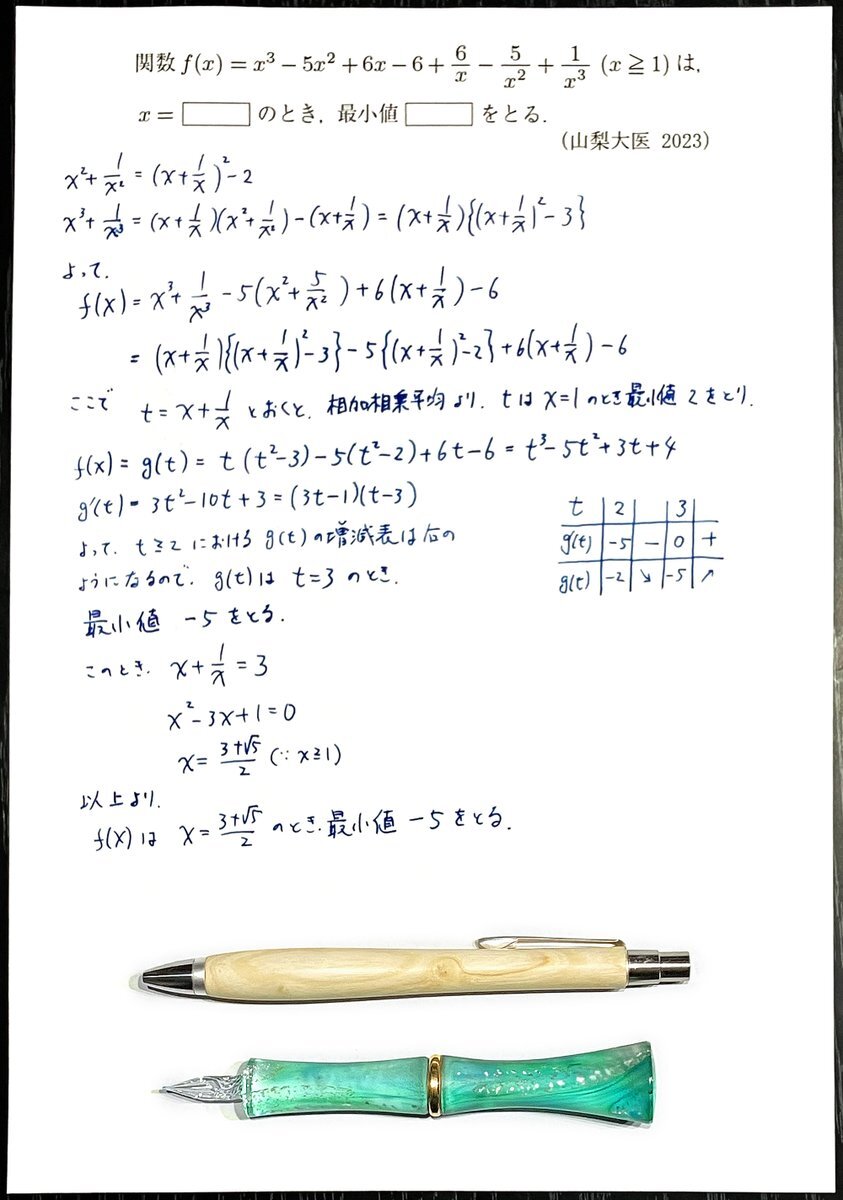 関数 f(x) = x³ − 5x² + 6x − 6 + 6/x − 5/x² + 1/x³ (x ≧ 1) は,
x = □ のとき, 最小値 □ をとる.
(山梨大医 2023)
x² + 1/x² = (x + 1/x)² − 2
x³ + 1/x³ = (x + 1/x)(x² + 1/x²) − (x + 1/x) = (x + 1/x){(x + 1/x)² − 3}
よって,
f(x) = x³ + 1/x³ − 5(x² + 5/x²) + 6(x + 1/x) − 6
= (x + 1/x){(x + 1/x)² − 3} − 5{(x + 1/x)² − 2} + 6(x + 1/x) − 6
ここで t = x + 1/x とおくと, 相加相乗平均より, tは x=1 のとき最小値 2 をとり,
f(x) = g(t) = t(t² − 3) − 5(t² − 2) + 6t − 6 = t³ − 5t² + 3t + 4
g′(t) = 3t² − 10t + 3 = (3t − 1)(t − 3)
よって, t ≧ 2 における g(t) の増減表は右の
ようになるので, g(t) は t = 3 のとき,
最小値 −5 をとる.
t 2 3
g′(t) −5 − 0 +
g(t) −2 ↘ −5 ↗
このとき, x + 1/x = 3
x² − 3x + 1 = 0
x = (3+√5)/2 (∵ x ≧ 1)
以上より,
f(x) は x = (3+√5)/2 のとき, 最小値 −5 をとる.